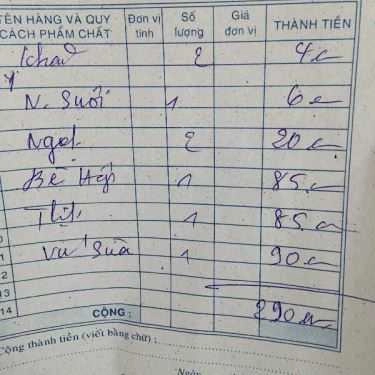 TÊN HÀNG VÀ QUY CÁCH PHẨM CHẤT Đơn vị tính Số lượng Giá đơn vị THÀNH TIỀN
khăn 2 4
N. Suối 1 6
Ngọt 2 20
Bê Hấp 1 85
Thịt 1 85
11 Vú Sữa 1 90
12
13
14 CỘNG : 290
Cộng thành tiền (viết bằng chữ) :
Ngày